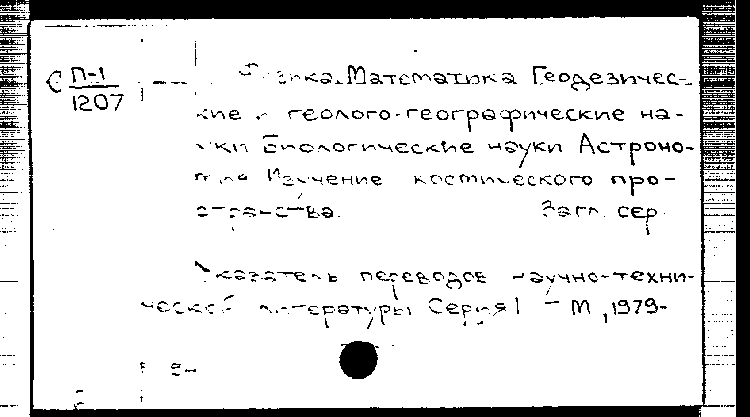 С П-1
1207
Физика. Математика Геодезичес-
кие и геолого-географические на-
уки Биологические науки Астроно-
мия Изучение космического про-
странства. Загл. сер.
Указатель переводов научно-техни-
ческой литературы Серия 1 - М, 1979-